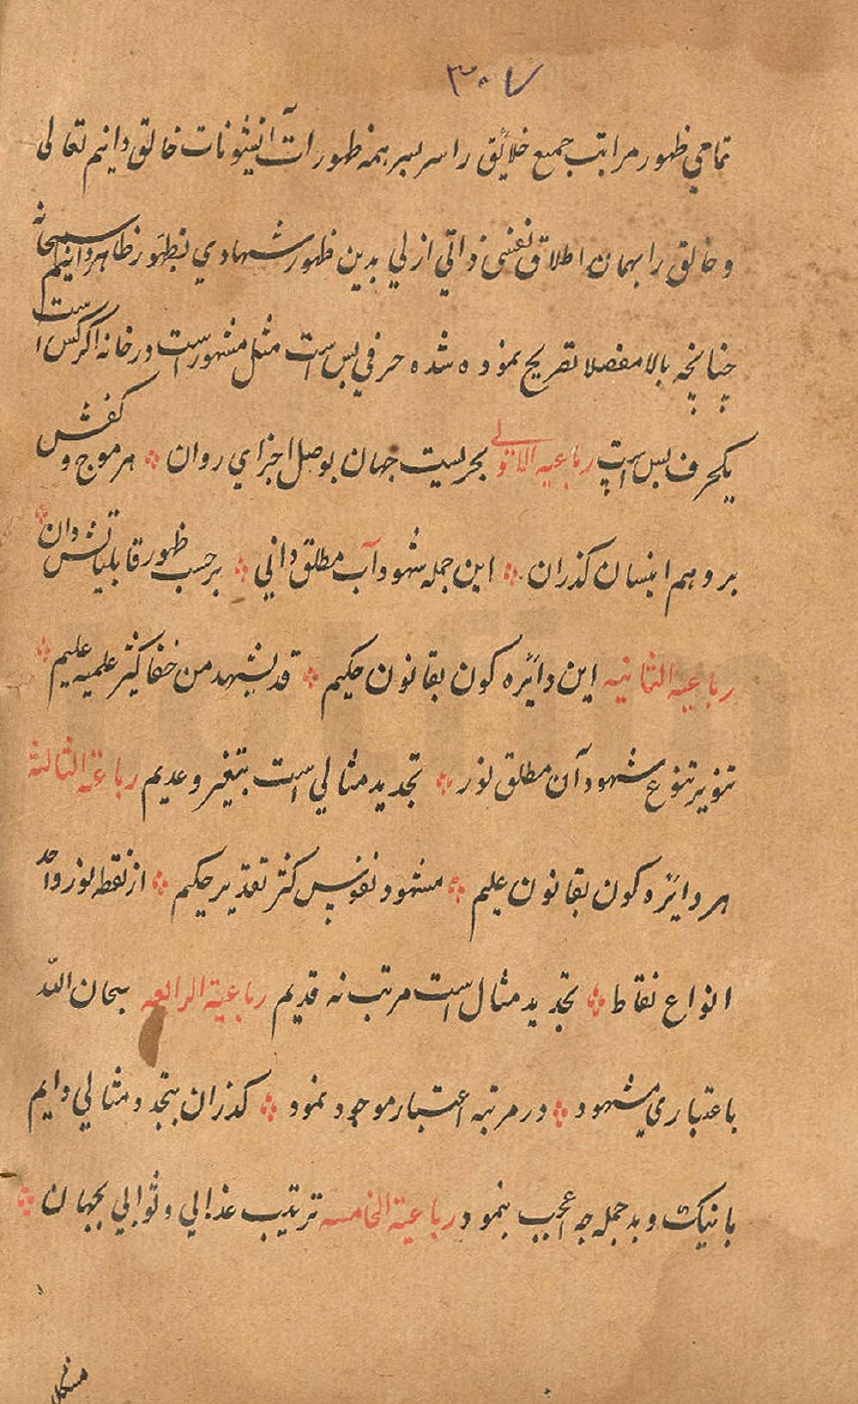 ۳۰۷
تمامي ظهور مراتب جميع خلائق را سر بسر همه ظهورات آنيشونات خالق دانيم تعالى
و خالق را بهمان اطلاق نفسى ذاتي ازلي بدين ظهور شهادي بظهور ظاهر دانيم سبحانه
چنانچه بالا مفصلا تصريح نموده شده حرفي بس است مثل مشهور است در خانه اگر كس است
يكحرف بس است رباعيه الاولى بحريست جهان بوصل اجزاي روان هر موج و كفش
بر وهم انسان كذران اين جمله شهود آب مطلق داني بر حسب ظهور قابلياتش دان
رباعية الثانيه اين دائره كون بقانون حكيم قد يشهد من خفا كثر علميه عليم
تنوير تنوع شهود آن مطلق نور تجديد مثالي است بتغير وعديم رباعية الثالثة
هر دائره كون بقانون عليم مشهود نفوس كثر تقدير حكيم از نقطه نور واحد
انواع نقاط تجديد مثال است مرتب نه قديم رباعية الرابعه سبحان الله
باعتباري مشهود در مرتبه اعتبار موجود نمود كذران بتجدد مثالي دايم
بانيك و بد جمله چه اعجب بنمود رباعية الخامسه ترتيب عذابي و ثوابي بجهان